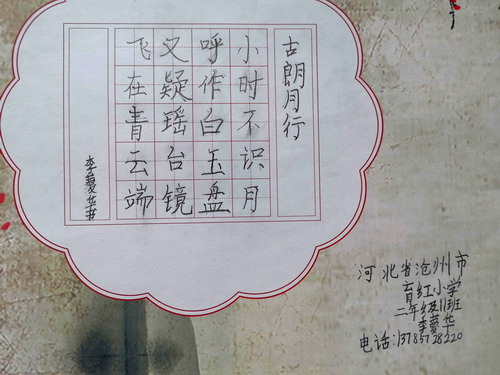 古朗月行
小时不识月
呼作白玉盘
又疑瑶台镜
飞在青云端
李蔓华书
河北省沧州市
育红小学
二年级11班
李蔓华
电话:13785728220